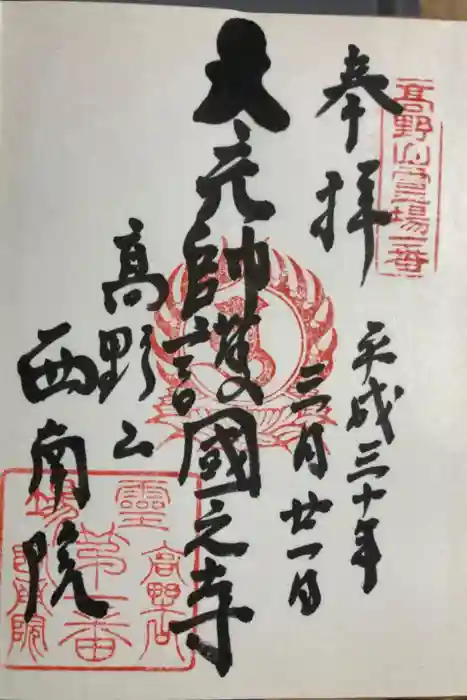 高野山霊場一番
奉拝
平成三十年
三月廿一日
大元帥護國之寺
高野山
西南院
靈場第一番
高野山
西南院